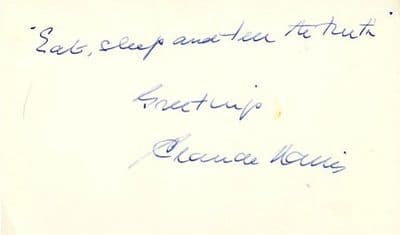 "Eat, sleep and tell the truth"
Greetings
Claude Harris